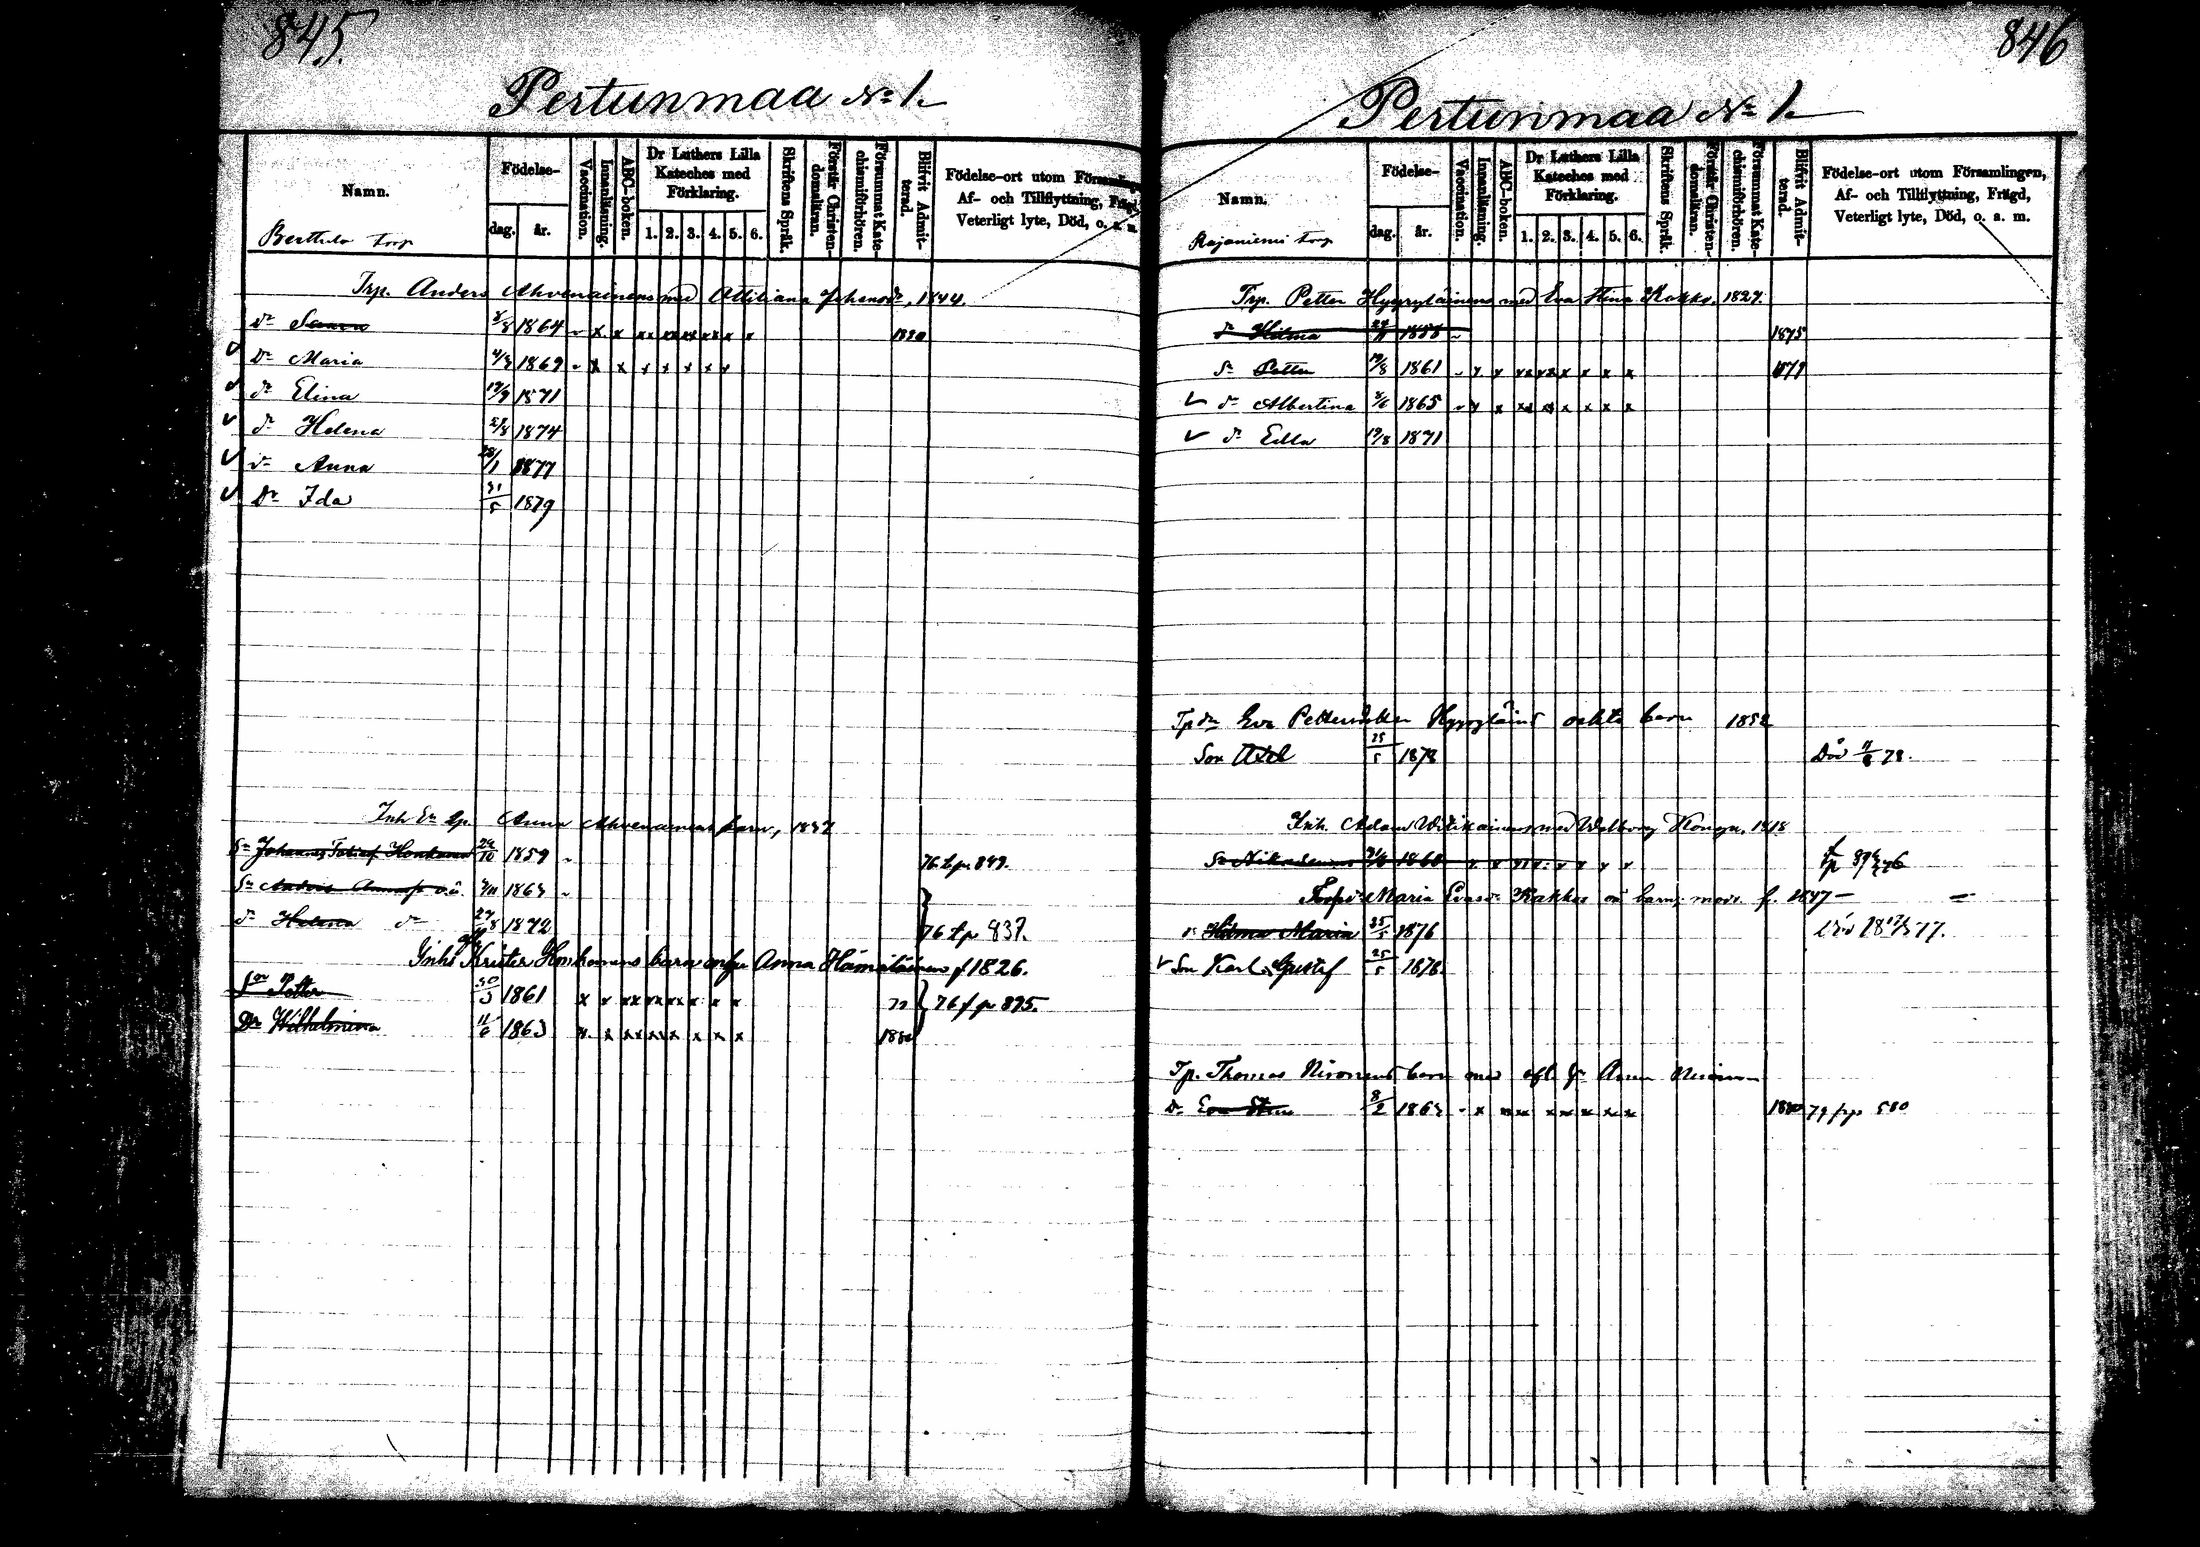 845.
Pertunmaa No 1.
Namn.
Födelse-
dag.
år.
Vaccination.
Innanläsning.
ABC-boken.
Dr Luthers Lilla Kateches med Förklaring.
1. 2. 3. 4. 5. 6.
Skriftens Språk.
Förstår Christendomsläran.
Försummat Katechismiförhören.
Blifvit Admitterad.
Födelse-ort utom Församlingen,
Af- och Tillflyttning, Frägd,
Veterligt lyte, Död, o. a. m.
Berttula torp
Trp. Anders Ahvenainens med Attiliana Johansdr, 1844.
dr 1864 x x xx xx xx xx x x 1880
Dr Maria 1869 x x x x x x x
dr Elina 19/9 1871
dr Helena 1874
dr Anna 28/1 1877
Dr Ida 31/5 1879
Anna Ahvenainens barn, 1832
Sn Johannes Honkanen 24/10 1859 76 t. p. 849.
Sn Anders 1863
dr Helena dr 27/8 1872 76 t p 837.
Inhs Krister Honkanens barn Anna Hämäläinen f 1826.
Son Petter 30/3 1861 x x xx xx xx x x x 76 f p 895.
Dr Wilhelmina 11/6 1863 x x xx xx x x x x 1880
846
Pertunmaa No 1.
Namn.
Födelse-
dag.
år.
Vaccination.
Innanläsning.
ABC-boken.
Dr Luthers Lilla Kateches med Förklaring.
1. 2. 3. 4. 5. 6.
Skriftens Språk.
Förstår Christendomsläran.
Försummat Katechismiförhören.
Blifvit Admitterad.
Födelse-ort utom Församlingen,
Af- och Tillflyttning, Frägd,
Veterligt lyte, Död, o. a. m.
Rajaniemi torp
Trp. Petter Hyyryläinens med Eva Stina Kakko. 1827.
dr Hilma 1858 1875
Sn Petter 19/8 1861 x x xx xx x x x x 1879
dr Albertina 1865 x x xx xx x x x x
dr Edla 19/8 1871
Tp dr Eva Pettersdotter Hyyryläins oäkta barn 1852
Son Axel 25/5 1878 Död 11/8 78.
Inh. Adam med Walborg 1818
1860 x x x x x x x
Maria Kakkos oä barn; modr. f. 1847
Hilma Maria 25/5 1876 död 77.
Son Karl Gustaf 25/5 1878.
Tp. Thomas Niironens barn med afl Anna
Dr Eva Stina 8/2 1863 x xx x x x x x 1880 79 580